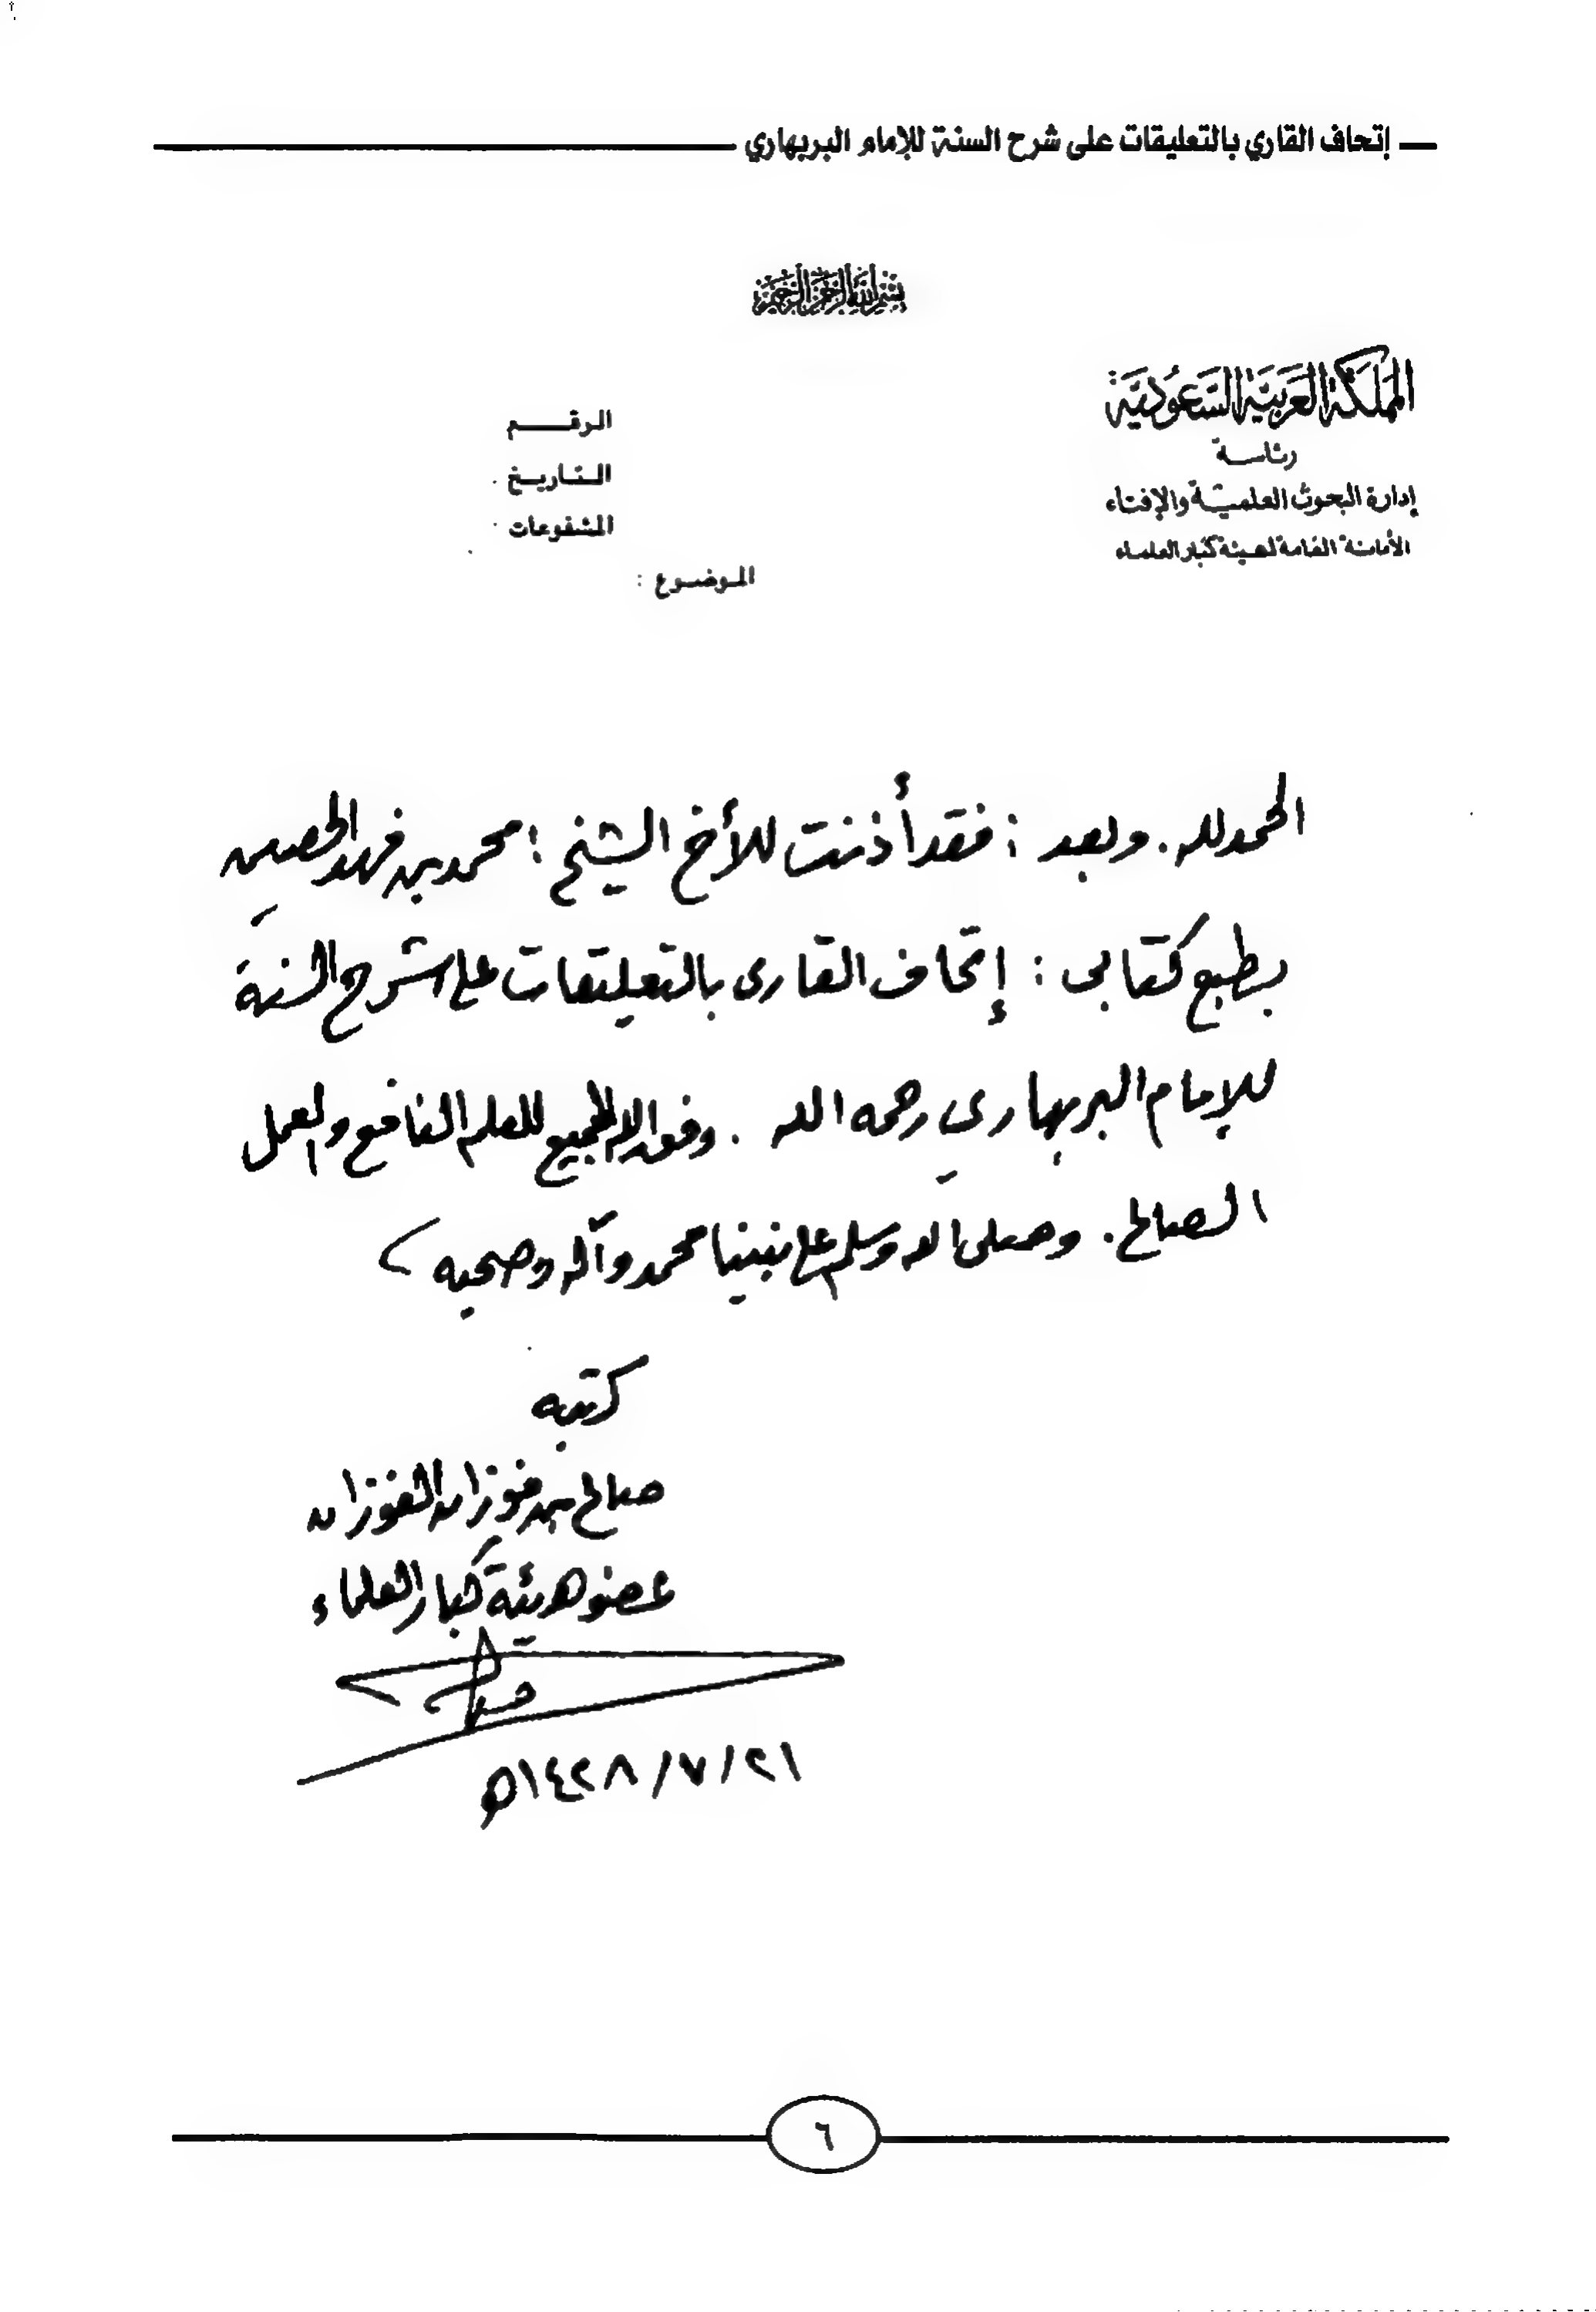 إتحاف القاري بالتعليقات على شرح السنة للإمام البربهاري
بسم الله الرحمن الرحيم
المملكة العربية السعودية
رئاسة
إدارة البحوث العلمية والإفتاء
الأمانة العامة لهيئة كبار العلماء
الرقم
التاريخ
المشفوعات
الموضوع :
الحمد لله . وبعد : فقد أذنت للأخ الشيخ : محمد بن فهد الحصين
بطبع كتابي : إتحاف القارى بالتعليقات على شرح السنة
للإمام البربهاري رحمه الله . وفق الله الجميع للعلم النافع والعمل
الصالح . وصلى الله وسلم على نبينا محمد وآله وصحبه
كتبه
صالح بن فوزان الفوزان
عضو هيئة كبار العلماء
٢١/٧/١٤٢٨هـ
٦